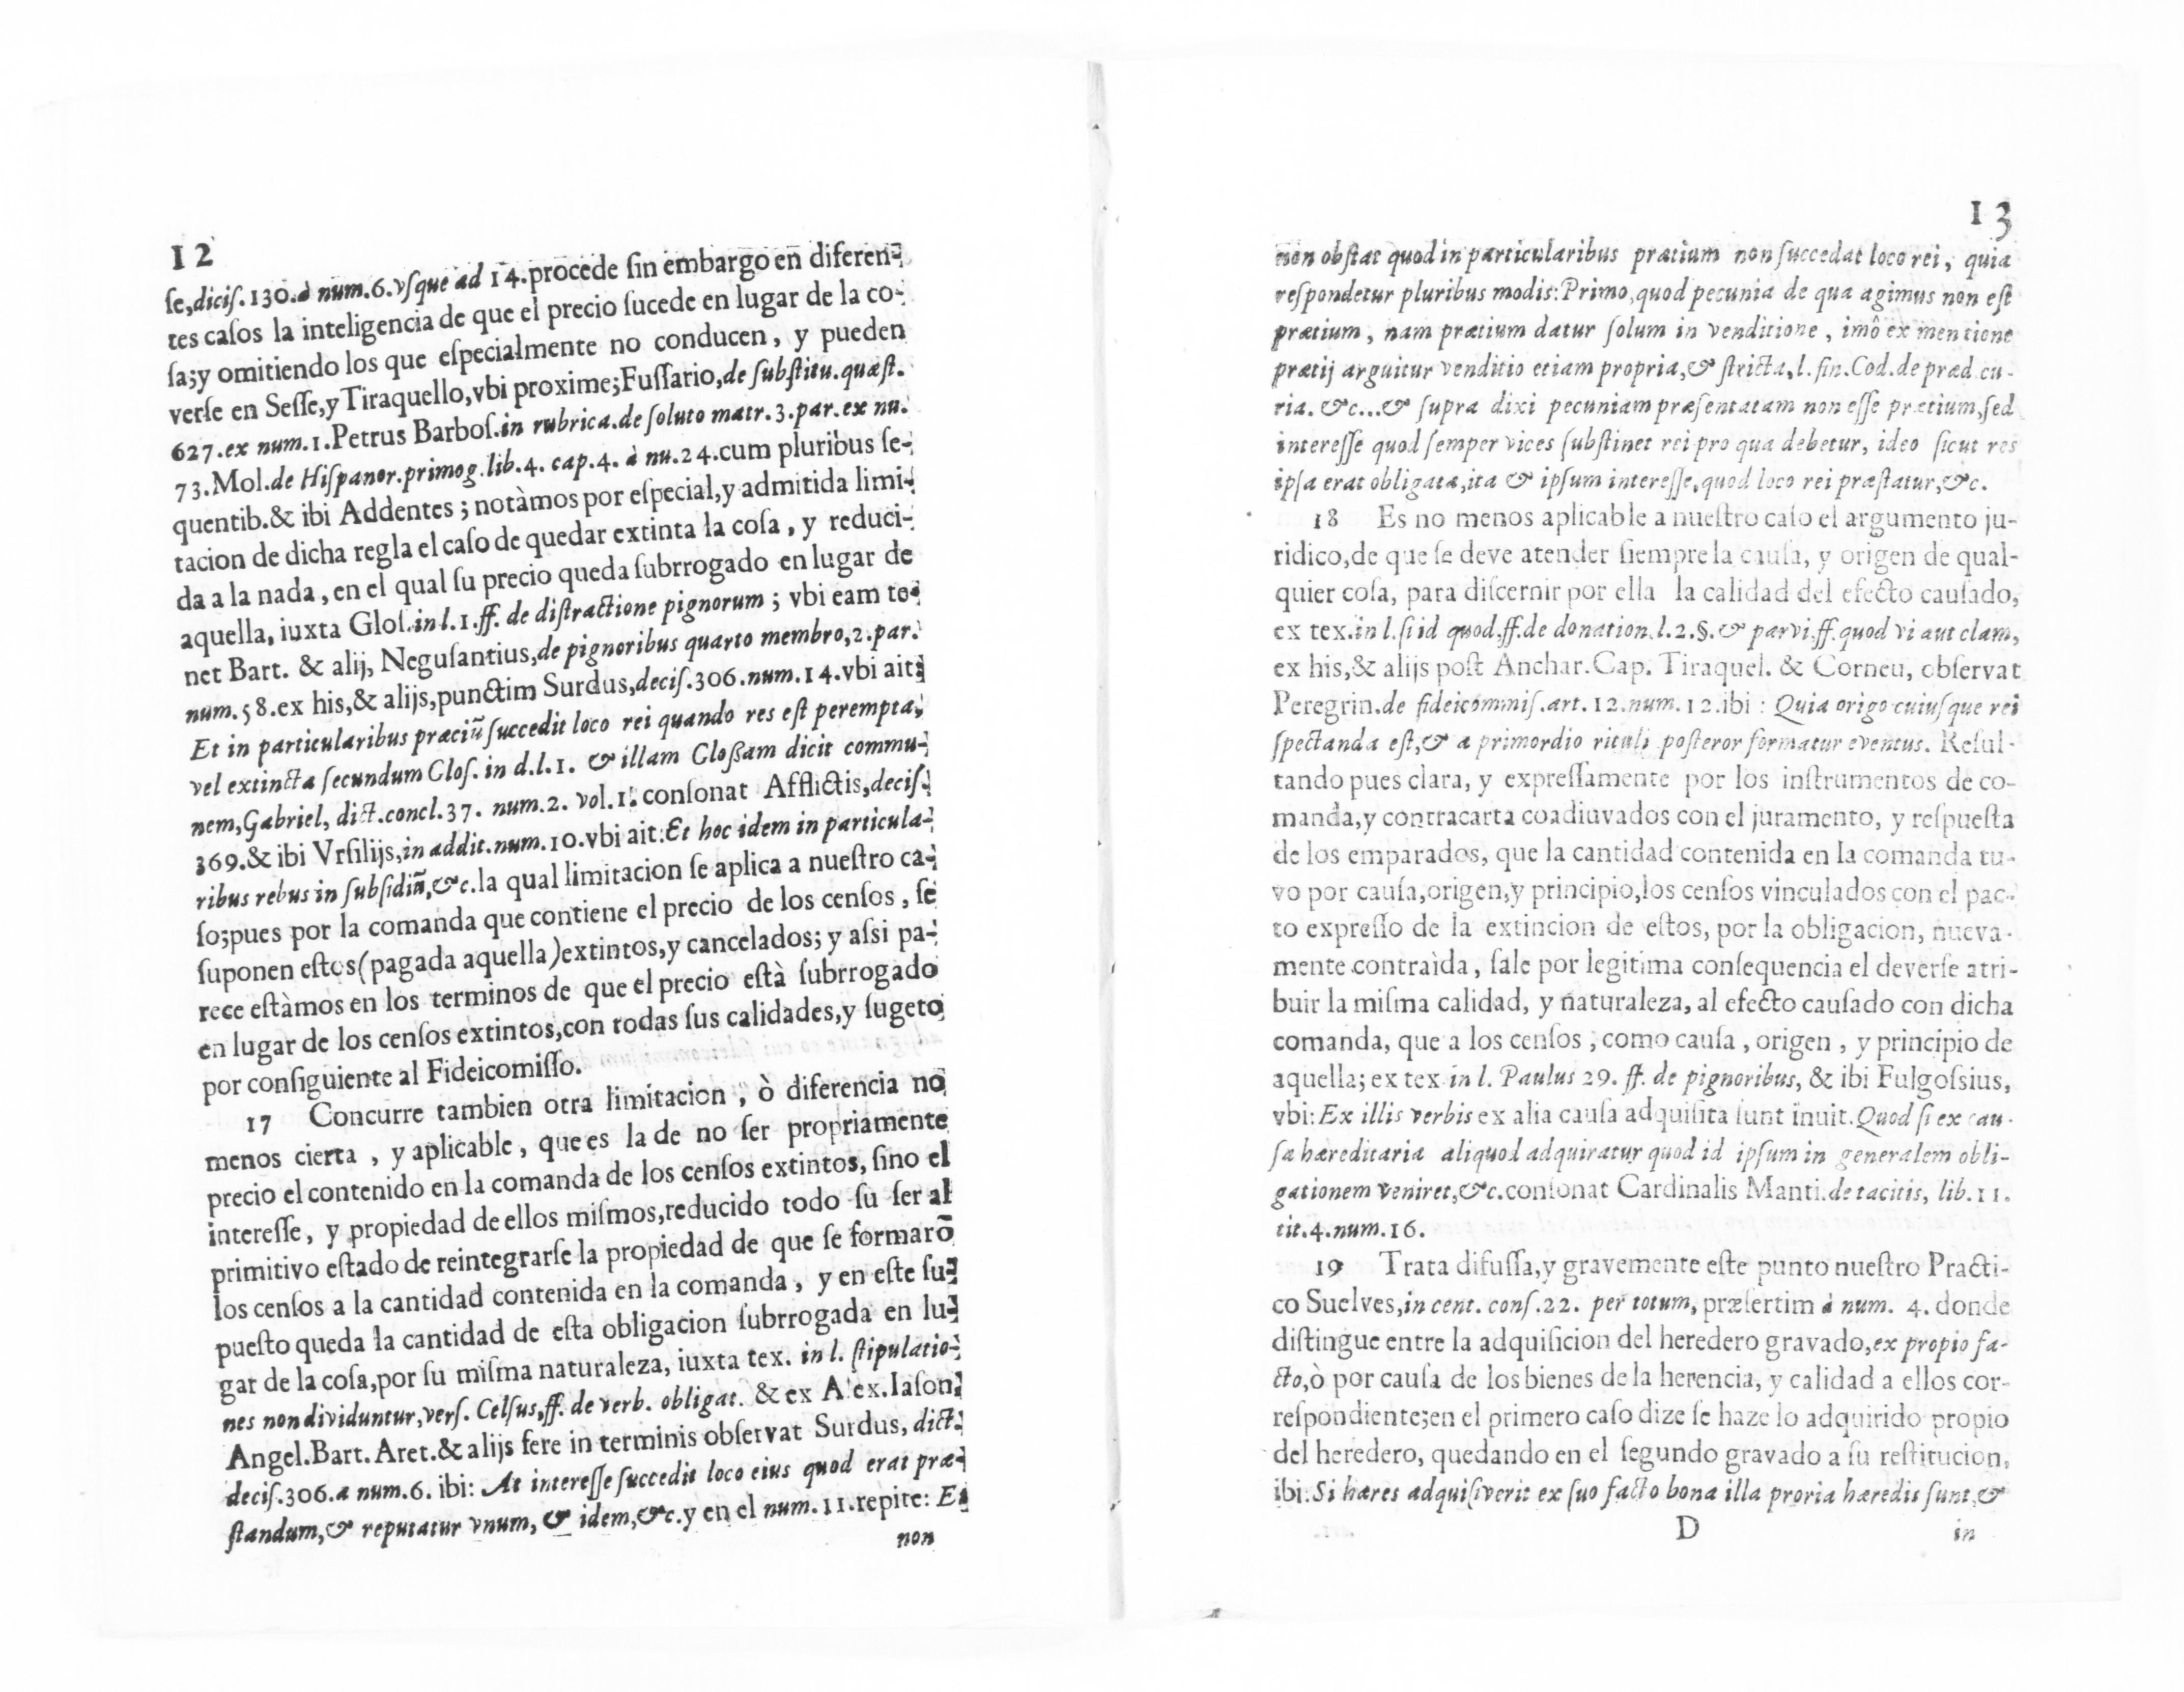 12
ſe,diciſ.130.à num.6.vſque ad 14.procede ſin embargo en diferen-
tes caſos la inteligencia de que el precio ſucede en lugar de la co-
ſa;y omitiendo los que eſpecialmente no conducen, y pueden
verſe en Seſſe,y Tiraquello,vbi proxime;Fuſſario,de ſubſtitu.quæſt.
627.ex num.1.Petrus Barboſ.in rubrica.de ſoluto matr.3.par.ex nu.
73.Mol.de Hiſpanor.primog.lib.4. cap.4. à nu.24.cum pluribus ſe-
quentib.& ibi Addentes ; notàmos por eſpecial,y admitida limi-
tacion de dicha regla el caſo de quedar extinta la coſa , y reduci-
da a la nada , en el qual ſu precio queda ſubrrogado en lugar de
aquella, iuxta Gloſ.in l.1.ff. de diſtractione pignorum ; vbi eam te-
net Bart. & alij, Neguſantius,de pignoribus quarto membro,2.par.
num.58.ex his,& alijs,punctim Surdus,deciſ.306.num.14.vbi ait:
Et in particularibus præciũ ſuccedit loco rei quando res eſt perempta,
vel extincta ſecundum Gloſ. in d.l.1. & illam Gloßam dicit commu-
nem,Gabriel, dict.concl.37. num.2. vol.1. conſonat Afflictis,deciſ.
369.& ibi Vrſilijs,in addit.num.10.vbi ait:Et hoc idem in particula-
ribus rebus in ſubſidiũ,&c.la qual limitacion ſe aplica a nueſtro ca-
ſo;pues por la comanda que contiene el precio de los cenſos , ſe
ſuponen eſtos(pagada aquella)extintos,y cancelados; y aſsi pa-
rece eſtàmos en los terminos de que el precio eſtà ſubrrogado
en lugar de los cenſos extintos,con todas ſus calidades,y ſugeto
por conſiguiente al Fideicomiſſo.
17 Concurre tambien otra limitacion , ò diferencia no
menos cierta , y aplicable , que es la de no ſer propriamente
precio el contenido en la comanda de los cenſos extintos, ſino el
intereſſe, y propiedad de ellos miſmos,reducido todo ſu ſer al
primitivo eſtado de reintegrarſe la propiedad de que ſe formarõ
los cenſos a la cantidad contenida en la comanda , y en eſte ſu-
pueſto queda la cantidad de eſta obligacion ſubrrogada en lu-
gar de la coſa,por ſu miſma naturaleza, iuxta tex. in l. ſtipulatio-
nes non dividuntur,verſ. Celſus,ff. de verb. obligat. & ex Alex.Iaſon.
Angel.Bart. Aret.& alijs fere in terminis obſervat Surdus, dict.
deciſ.306.a num.6. ibi: At intereſſe ſuccedit loco eius quod erat præ-
ſtandum,& reputatur vnum, & idem,&c.y en el num.11.repite: Et
non
13
non obſtat quod in particularibus prætium non ſuccedat loco rei, quia
reſpondetur pluribus modis:Primo,quod pecunia de qua agimus non eſt
prætium , nam prætium datur ſolum in venditione , imô ex mentione
prætij arguitur venditio etiam propria,& ſtricta,l. fin.Cod.de præd.cu-
ria. &c...& ſupra dixi pecuniam præſentatam non eſſe prætium,ſed
intereſſe quod ſemper vices ſubſtinet rei pro qua debetur, ideo ſicut res
ipſa erat obligata,ita & ipſum intereſſe,quod loco rei præſtatur,&c.
18 Es no menos aplicable a nueſtro caſo el argumento ju-
ridico,de que ſe deve atender ſiempre la cauſa, y origen de qual-
quier coſa, para diſcernir por ella la calidad del efecto cauſado,
ex tex.in l.ſi id quod.ff.de donation.l.2.§.& parvi.ff.quod vi aut clam,
ex his,& alijs poſt Anchar.Cap. Tiraquel. & Corneu, obſervat
Peregrin.de fideicommiſ.art.12.num.12.ibi : Quia origo cuiuſque rei
ſpectanda eſt,& a primordio rituli poſteror formatur eventus. Reſul-
tando pues clara, y expreſſamente por los inſtrumentos de co-
manda,y contracarta coadiuvados con el juramento, y reſpueſta
de los emparados, que la cantidad contenida en la comanda tu-
vo por cauſa,origen,y principio,los cenſos vinculados con el pac-
to expreſſo de la extincion de eſtos, por la obligacion, nueva-
mente contraìda , ſale por legitima conſequencia el deverſe atri-
buir la miſma calidad, y naturaleza, al efecto cauſado con dicha
comanda, que a los cenſos , como cauſa , origen , y principio de
aquella; ex tex in l. Paulus 29. ff. de pignoribus, & ibi Fulgoſsius,
vbi:Ex illis verbis ex alia cauſa adquiſita ſunt inuit.Quod ſi ex cau-
ſa hæreditaria aliquod adquiratur quod id ipſum in generalem obli-
gationem veniret,&c.conſonat Cardinalis Manti.de tacitis, lib.11.
tit.4.num.16.
19 Trata difuſſa,y gravemente eſte punto nueſtro Practi-
co Suelves,in cent. conſ.22. per totum, præſertim à num. 4. donde
diſtingue entre la adquiſicion del heredero gravado,ex propio fa-
cto,ò por cauſa de los bienes de la herencia, y calidad a ellos cor-
reſpondiente;en el primero caſo dize ſe haze lo adquirido propio
del heredero, quedando en el ſegundo gravado a ſu reſtitucion,
ibi:Si hæres adquiſiverit ex ſuo facto bona illa proria hæredis ſunt,&
D in